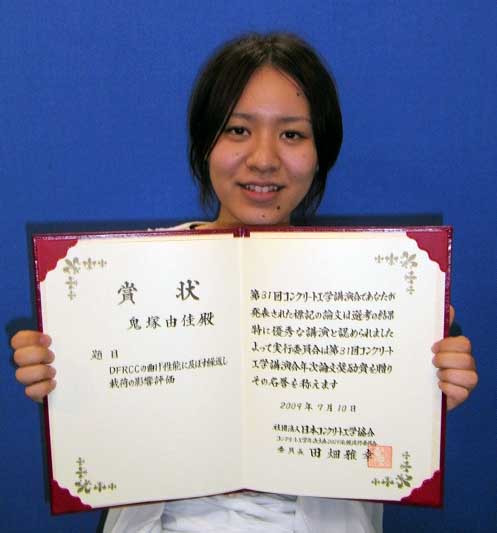 賞状
鬼塚由佳殿
題目
DFRCCの曲げ性能に及ぼす繰返し
載荷の影響評価
第31回コンクリート工学講演会であなたが
発表された標記の論文は選考の結果
特に優秀な講演と認められました
よって実行委員会は第31回コンクリート
工学講演会年次論文奨励賞を贈り
その名誉を称えます
2009年7月10日
社団法人日本コンクリート工学協会
コンクリート工学年次大会2009実行委員会
委員長 田畑雅幸